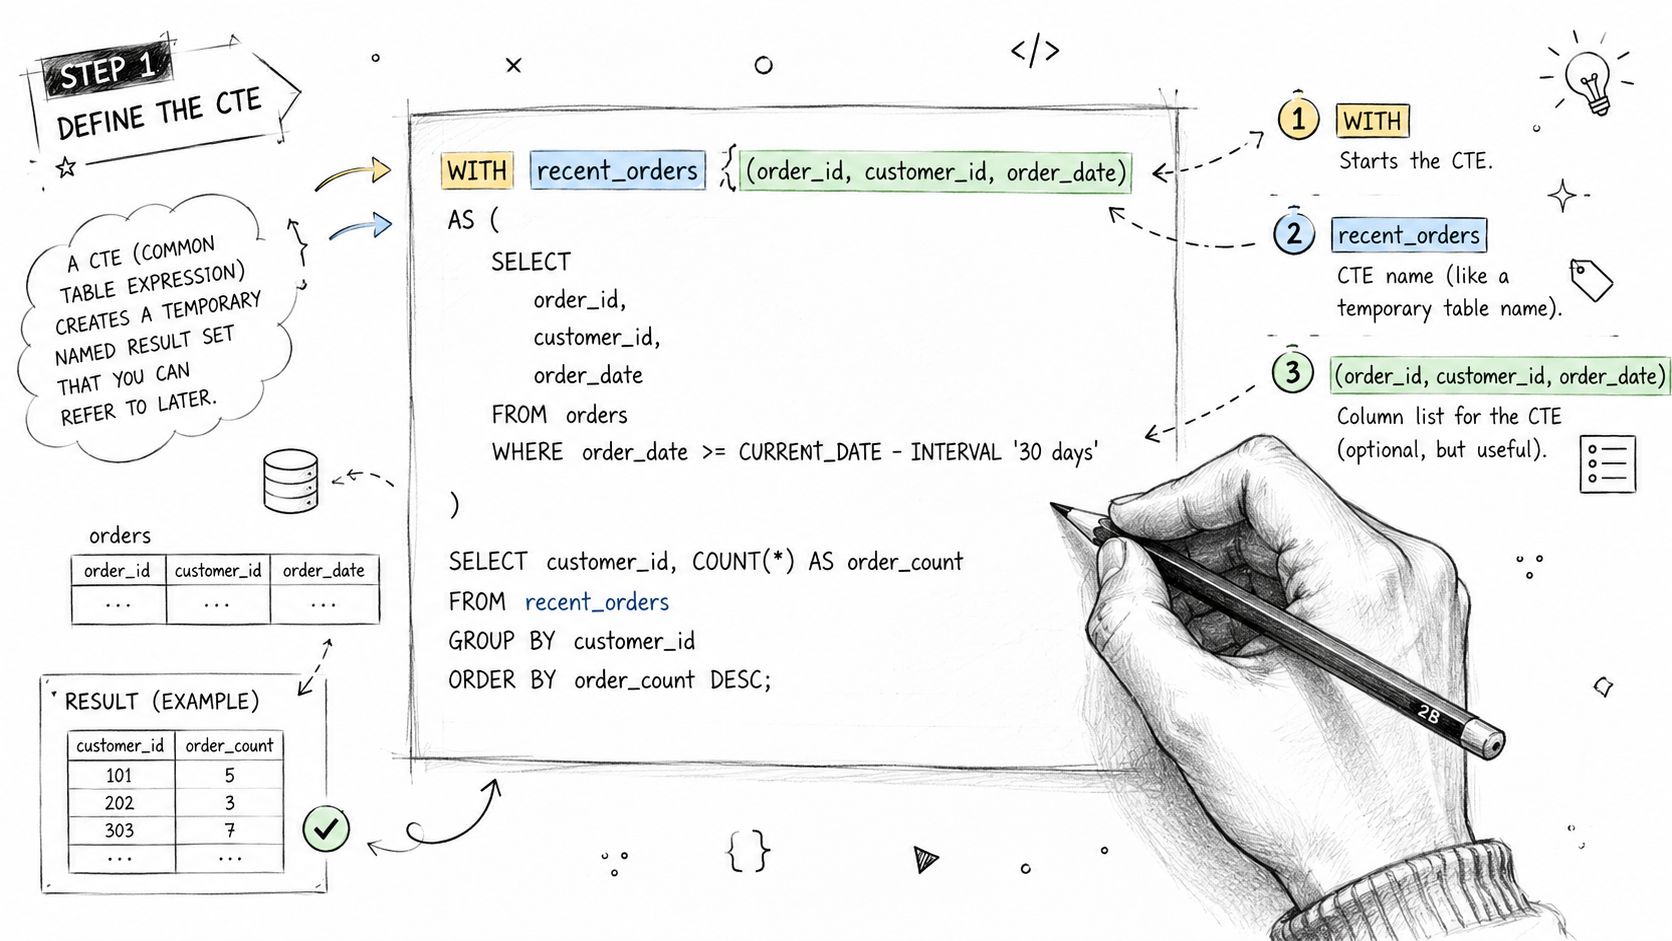 STEP 1
DEFINE THE CTE
A CTE (COMMON
TABLE EXPRESSION)
CREATES A TEMPORARY
NAMED RESULT SET
THAT YOU CAN
REFER TO LATER.
orders
order_id customer_id order_date
... ... ...
RESULT (EXAMPLE)
customer_id order_count
101 5
202 3
303 7
... ...
</>
WITH recent_orders { (order_id, customer_id, order_date)
AS (
SELECT
order_id,
customer_id,
order_date
FROM orders
WHERE order_date >= CURRENT_DATE - INTERVAL '30 days'
)
SELECT customer_id, COUNT(*) AS order_count
FROM recent_orders
GROUP BY customer_id
ORDER BY order_count DESC;
{ }
1 WITH
Starts the CTE.
2 recent_orders
CTE name (like a
temporary table name).
3 (order_id, customer_id, order_date)
Column list for the CTE
(optional, but useful).
2B